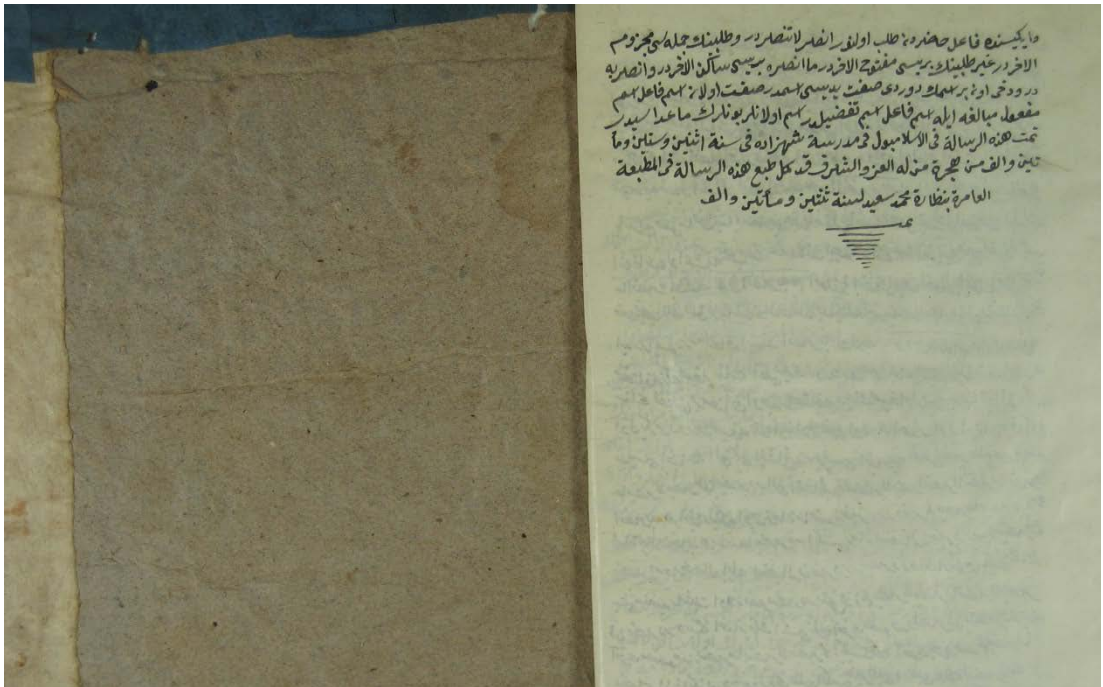 فاعل حاضردن طلب اولنور انصر لا تنصر در و طلبينك جمله سى مجزوم
الاخردر غير طلبينك بريسى مفتوح الاخردر ما انصره بريسى ساكن الاخردر و انصر به
در دخى اون بر اسمك دوردى صفت يديسى اسمدر صفت اولان اسم فاعل اسم
مفعول مبالغه ايله اسم فاعل اسم تفضيلدر اسم اولانلر بونلرك ماعداسيدر
تمت هذه الرسالة فى الاسلامبول فى مدرسة شهزاده فى سنة اثنين وستين وما
تين والف من هجرة من له العز والشرف قد كمل طبع هذه الرسالة فى المطبعة
العامرة بنظارة محمد سعيد لسنة ثنتين ومأتين والف